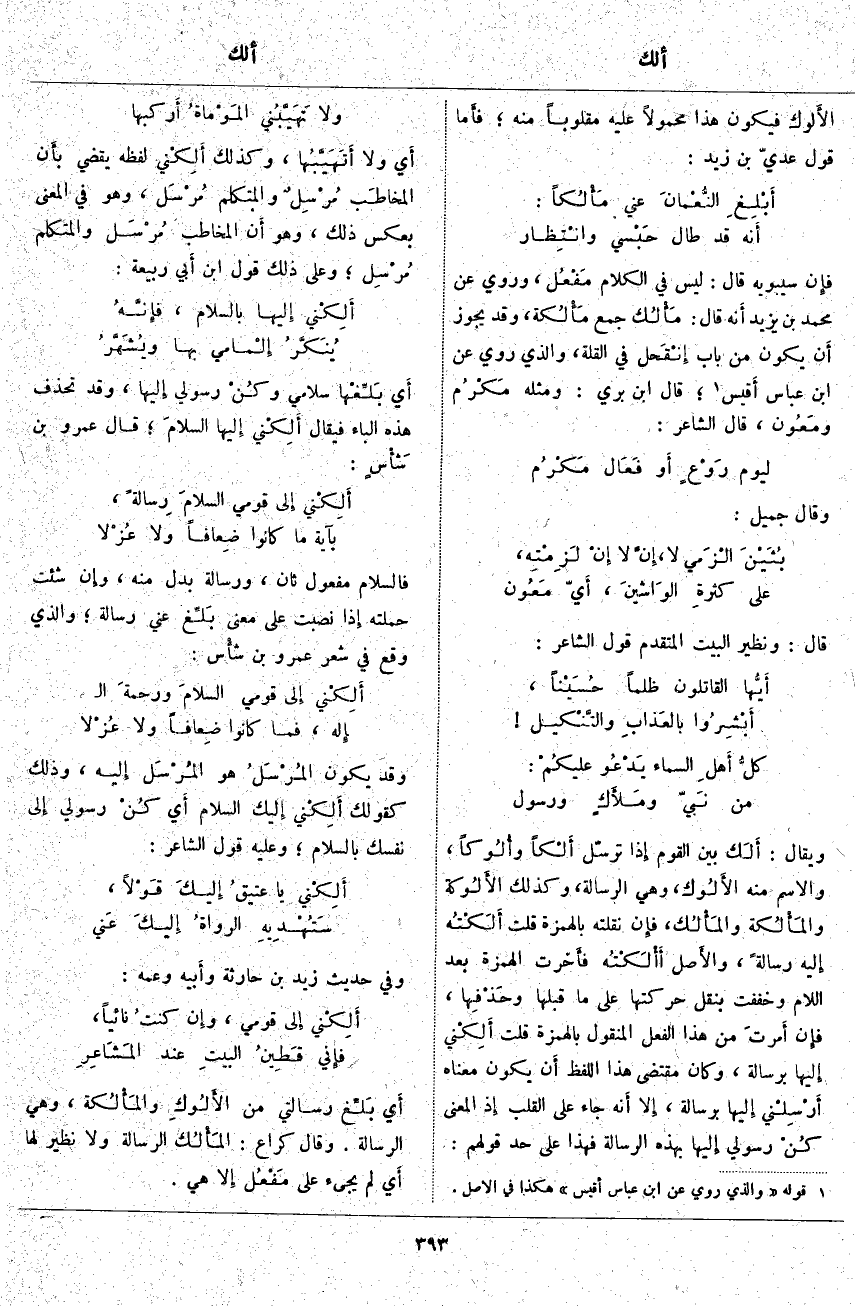 ألك
ألك
الألوك فيكون هذا محمولاً عليه مقلوبـاً منه ؛ فأما
قول عديّ بن زيد :
أَبْلِـغِ النُّعْمانَ عني مَأْلُـكاً :
أنه قد طال حَبْسي وانْتِظـار
فإن سيبويه قال : ليس في الكلام مَفْعُل ، وروي عن
محمد بن يزيد أنه قال : مَأْلُك جمع مَأْلُكة ، وقد يجوز
أن يكون من باب إنْقَحل في القلة ، والذي روي عن
ابن عباس أقيس١ ؛ قال ابن بري : ومثله مَكْرُم
ومَعُون ، قال الشاعر :
ليوم رَوْعٍ أو فَعَال مَكْرُم
وقال جميل :
بُثَيْنَ الْزَمي لا ، إنَّ لا إنْ لَزِمْتِهِ ،
على كثرةِ الواشينَ ، أيّ مَعُون
قال : ونظير البيت المتقدم قول الشاعر :
أَيُّها القاتلون ظلماً حُسَيْناً ،
أبْشِرُوا بالعذابِ والتَّنْكيل !
كلُّ أهلِ السماء يَدْعُو عليكُمْ :
من نَبيّ ومَلأَكٍ ورسول
ويقال : أَلَك بين القوم إذا ترسّل أَلْكاً وأُلُوكاً ،
والاسم منه الأَلُوك ، وهي الرسالة ، وكذلك الأَلُوكة
والمَأْلُكة والمَأْلُك ، فإن نقلته بالهمزة قلت أَلَكْتُه
إليه رسالةً ، والأصل أَأْلَكْتُه فأخرت الهمزة بعد
اللام وخففت بنقل حركتها على ما قبلها وحَذْفِها ،
فإن أمرتَ من هذا الفعل المنقول بالهمزة قلت أَلِكْني
إليها برسالة ، وكان مقتضى هذا اللفظ أن يكون معناه
أَرْسِلْني إليها برسالة ، إلا أنه جاء على القلب إذ المعنى
كُنْ رسولي إليها بهذه الرسالة فهذا على حد قولهم :
١ قوله « والذي روي عن ابن عباس أقيس » هكذا في الاصل .
ولا تَهَيَّبُني المَوْماةُ أركبها
أي ولا أَتَهَيَّبُها ، وكذلك أَلِكْني لفظه يقضي بأن
المخاطَب مُرْسِلٌ والمتكلم مُرْسَل ، وهو في المعنى
بعكس ذلك ، وهو أن المخاطب مُرْسَل والمتكلم
مُرْسِل ؛ وعلى ذلك قول ابن أبي ربيعة :
أَلِكْني إليها بالسلام ، فإنَّهُ
يُنَكَّرُ إلْمامي بها ويُشَهَّرُ
أي بَلِّغْها سلامي وكُنْ رسولي إليها ، وقد تحذف
هذه الباء فيقال أَلِكْني إليها السلامَ ؛ قـال عمرو بن
شَأْسٍ :
أَلِكْني إلى قومي السلامَ رِسالةً ،
بآية ما كانوا ضِعافـاً ولا عُزْلا
فالسلام مفعول ثان ، ورسالة بدل منه ، وإن شئت
حملته إذا نصبت على معنى بَلِّغ عني رسالة ؛ والذي
وقع في شعر عمرو بن شأس :
أَلِكْني إلى قومي السلامَ ورحمةَ الـ
إله ، فمـا كانوا ضِعافـاً ولا عُزْلا
وقد يكون المُرْسَلُ هو المُرْسَل إليـه ، وذلك
كقولك أَلِكْني إليك السلام أي كُنْ رسولي إلى
نفسك بالسلام ؛ وعليه قول الشاعر :
أَلِكْني يا عتيقُ إليـكَ قَوْلاً ،
سَتُهْدِيهِ الرواةُ إليـكَ عَني
وفي حديث زيد بن حارثة وأبيه وعمه :
أَلِكْني إلى قومي ، وإن كنتُ نائياً ،
فإني قَطِينُ البيتِ عند المَشاعِرِ
أي بَلِّغ رسـالتي من الأَلُوكِ والمَأْلُكة ، وهي
الرسالة . وقال كراع : المَأْلُك الرسالة ولا نظير لها
أي لم يجىء على مَفْعُل إلا هي .
٣٩٣